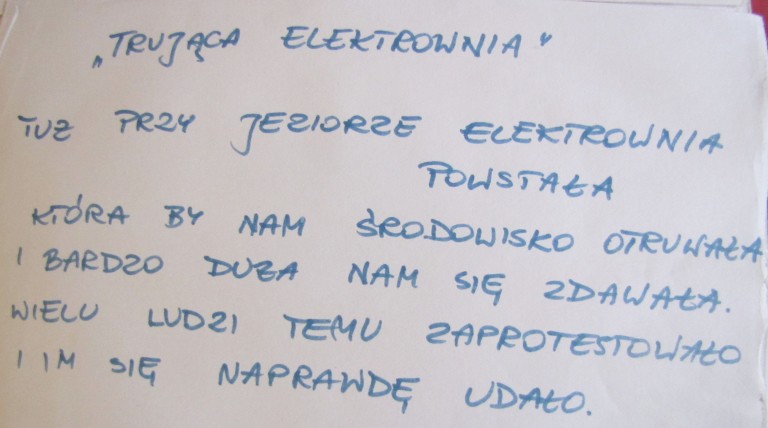 „TRUJĄCA ELEKTROWNIA"
TUZ PRZY JEZIORZE ELEKTROWNIA
POWSTAŁA
KTÓRA BY NAM ŚRODOWISKO OTRUWAŁA
I BARDZO DUZA NAM SIĘ ZDAWAŁA.
WIELU LUDZI TEMU ZAPROTESTOWAŁO
I IM SIĘ NAPRAWDĘ UDAŁO.